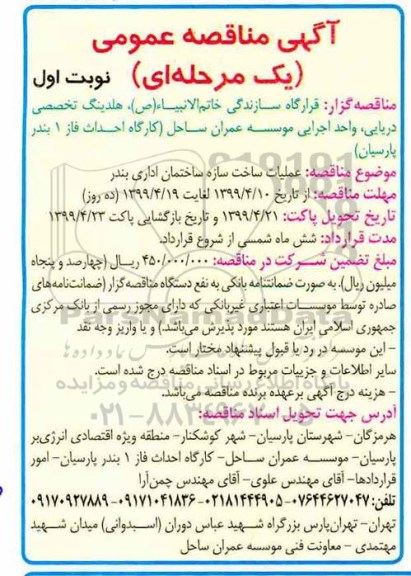 آگهی مناقصه عمومی
(یک مرحله‌ای) نوبت اول
مناقصه‌گزار: قرارگاه سازندگی خاتم‌الانبیاء(ص)، هلدینگ تخصصی
دریایی، واحد اجرایی موسسه عمران ساحل (کارگاه احداث فاز ۱ بندر
پارسیان)
موضوع مناقصه: عملیات ساخت سازه ساختمان اداری بندر
مهلت مناقصه: از تاریخ ۱۳۹۹/۴/۱۰ لغایت ۱۳۹۹/۴/۱۹ (ده روز)
تاریخ تحویل پاکت: ۱۳۹۹/۴/۲۱ و تاریخ بازگشایی پاکت ۱۳۹۹/۴/۲۳
مدت قرارداد: شش ماه شمسی از شروع قرارداد.
مبلغ تضمین شرکت در مناقصه: ۴۵۰/۰۰۰/۰۰۰ ریال (چهارصد و پنجاه
میلیون ریال). به صورت ضمانتنامه بانکی به نفع دستگاه مناقصه گزار (ضمانت‌نامه‌های
صادره توسط موسسات اعتباری غیربانکی که دارای مجوز رسمی از بانک مرکزی
جمهوری اسلامی ایران هستند مورد پذیرش می‌باشد.) و یا واریز وجه نقد
- این موسسه در رد یا قبول پیشنهاد مختار است.
سایر اطلاعات و جزییات مربوط در اسناد مناقصه درج شده است.
- هزینه درج آگهی برعهده برنده مناقصه می‌باشد.
آدرس جهت تحویل اسناد مناقصه:
هرمزگان- شهرستان پارسیان- شهر کوشکنار- منطقه ویژه اقتصادی انرژی‌بر
پارسیان- موسسه عمران ساحل- کارگاه احداث فاز ۱ بندر پارسیان- امور
قراردادها- آقای مهندس علوی- آقای مهندس چمن‌آرا
تلفن: ۰۷۶۴۴۶۲۷۰۴۷-۰۲۱۸۱۴۴۴۹۰۵-۰۹۱۷۱۰۴۱۸۳۶-۰۹۱۷۰۹۲۷۸۸۹
تهران- تهران‌پارس بزرگراه شهید عباس دوران (اسیدوانی) میدان شهید
مهتمدی - معاونت فنی موسسه عمران ساحل
ParsNamadData
پایگاه اطلاع رسانی مناقصه و مزایده